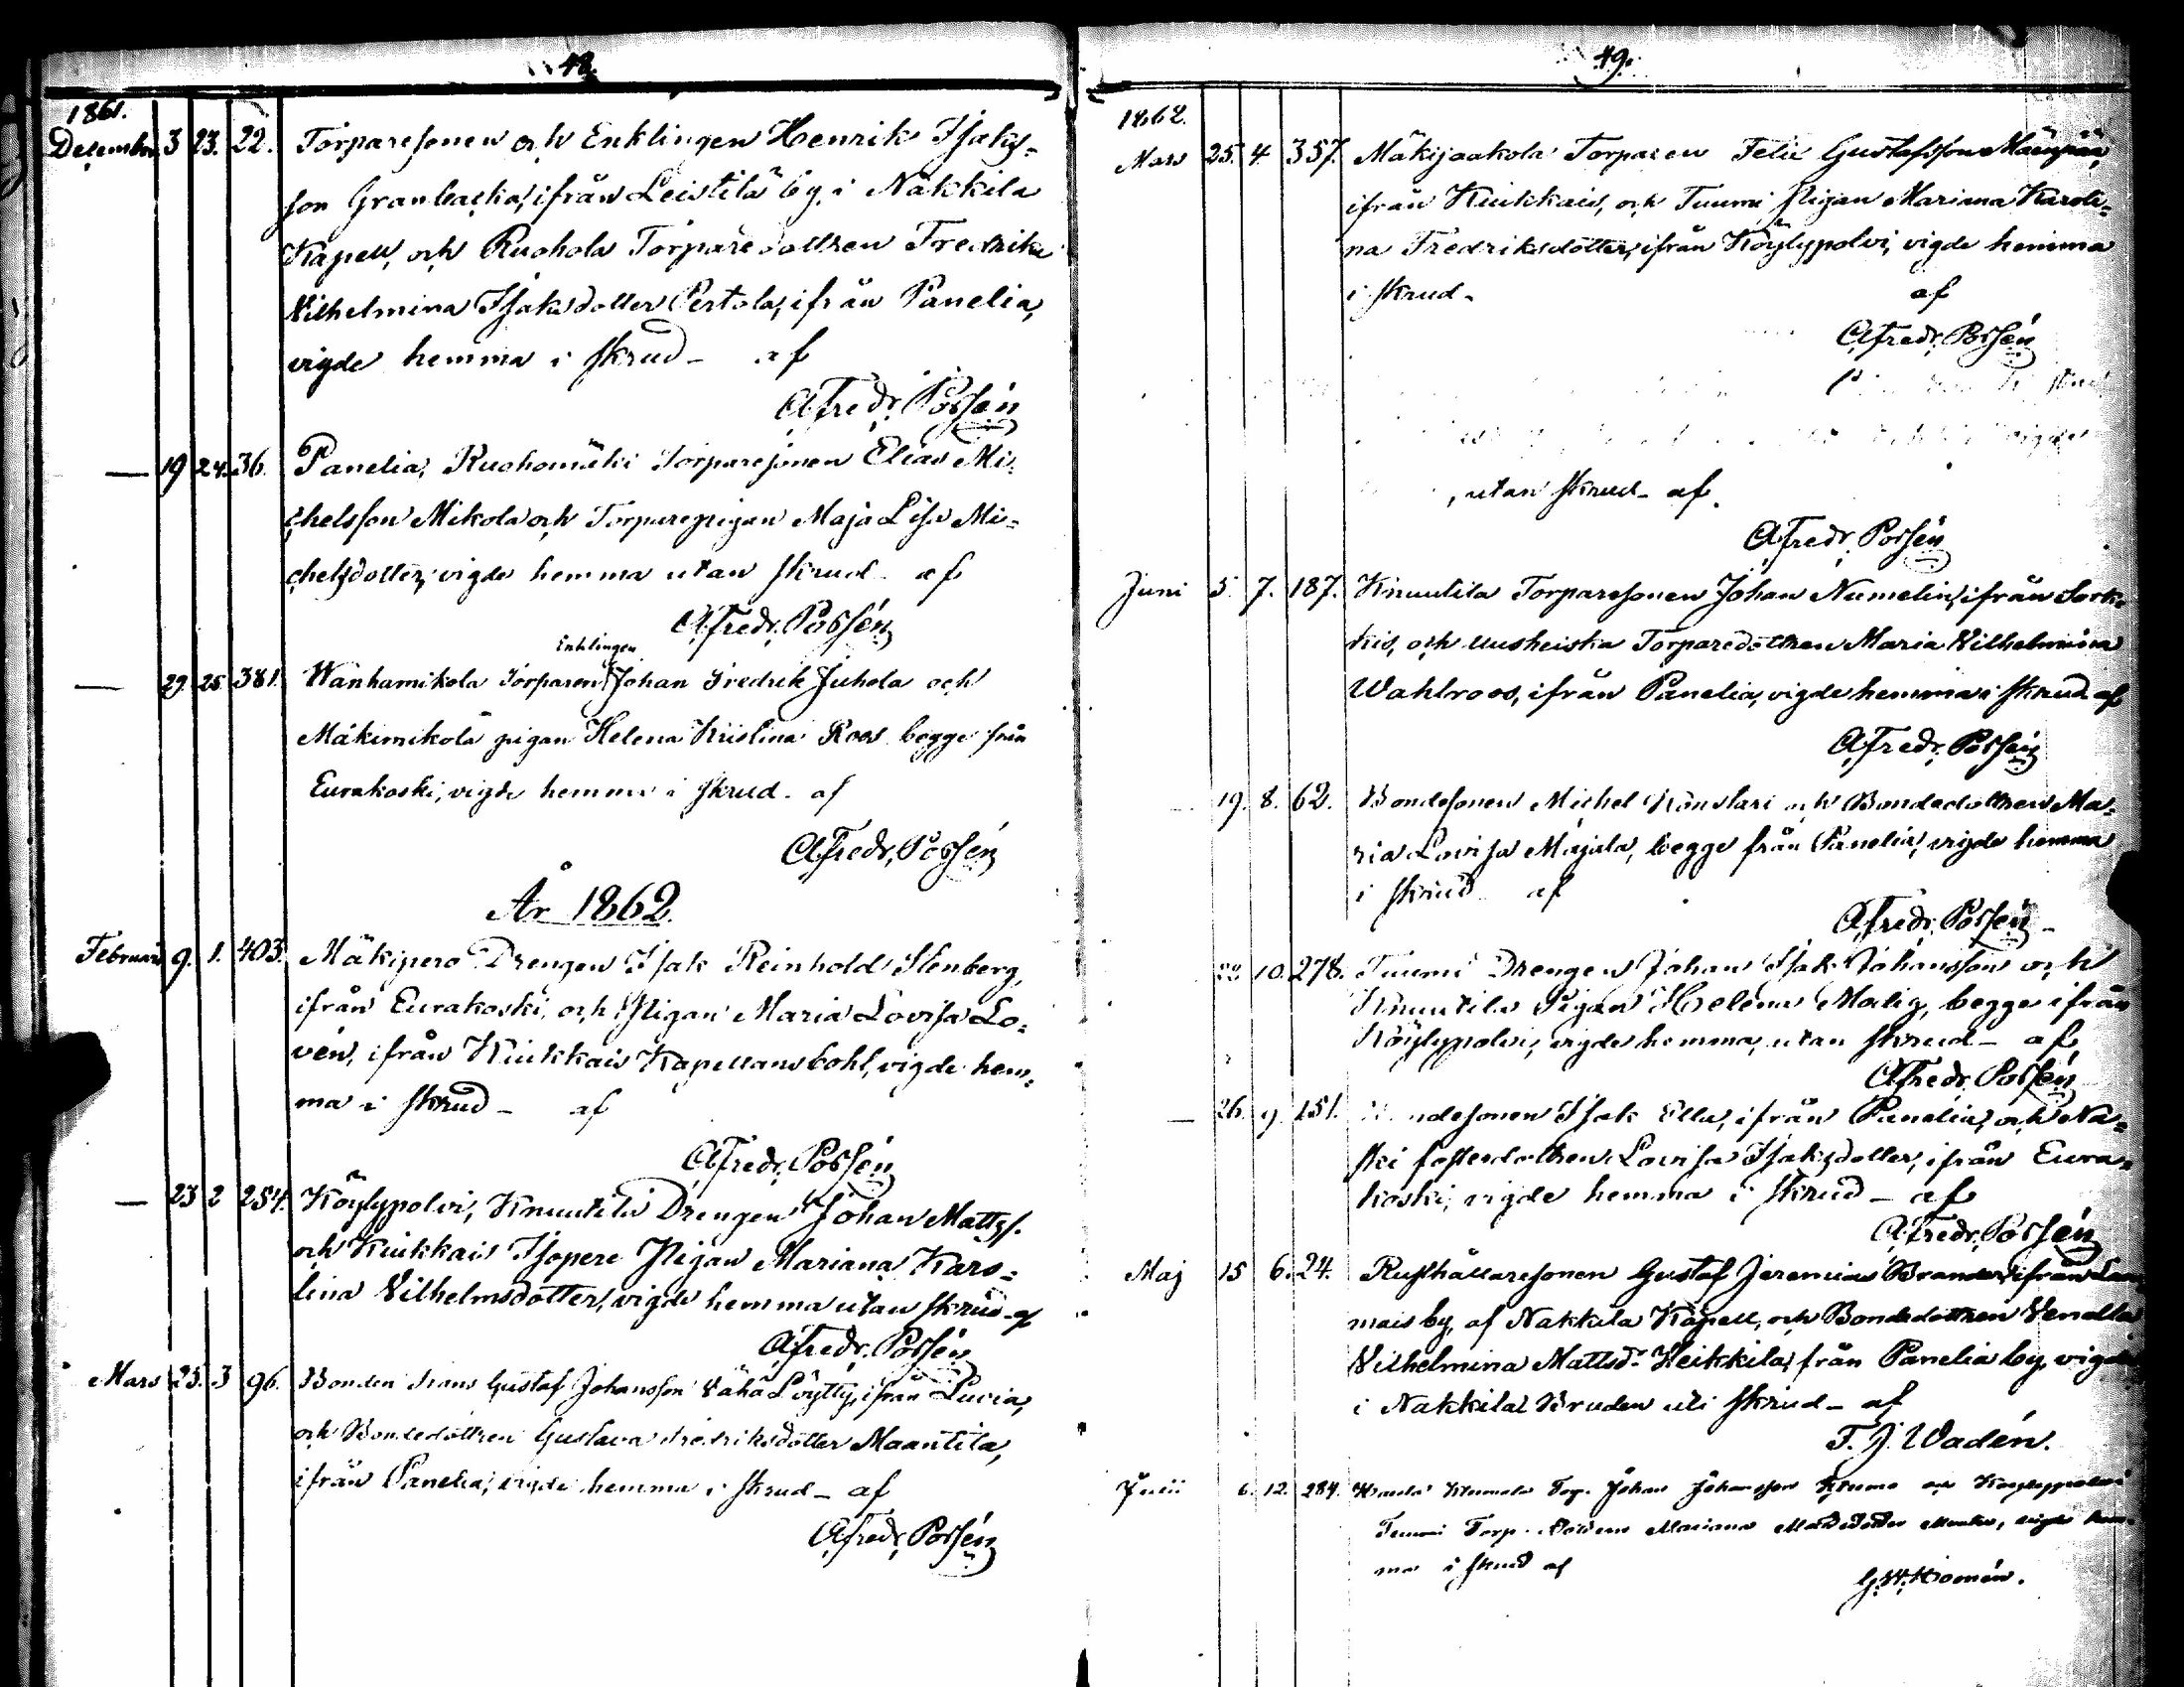 48.
1861.
December 3 23. 22. Torparesonen och Enklingen Henrik Isaks-
son Granbacka, ifrån Leistilä by, i Nakkila
Kapell, och Ruohola Torparedottren Fredrika
Vilhelmina Isaksdotter Pertola, ifrån Panelia,
vigde hemma i skrud - af
A. Fredr. Possén
— 19 24. 36. Panelia, Ruohomäki Torparesonen Elias Mi-
chelsson Mikola och Torparepigan Maja Lisa Mi-
chelsdotter, vigde hemma utan skrud - af
A. Fredr. Possén
Enklingen
— 29. 25. 381. Wanhamikola Torparen Johan Fredrik Juhola och
Mäkimikola pigan Helena Kristina Roos begge från
Eurakoski, vigde hemma i skrud - af
A. Fredr. Possén
År 1862.
Februari 9. 1. 403. Mäkipero Drengen Isak Reinhold Stenberg,
ifrån Eurakoski, och Pigan Maria Lovisa Lo-
vén, ifrån Kiukkais Kapellansbohl, vigde hem-
ma i skrud - af
A. Fredr. Possén
— 23 2 254. Köylypolvi, Knuutila Drengen Johan Mattss.
och Kiukkais Isopere Pigan Mariana Karo-
lina Vilhelmsdotter, vigde hemma utan skrud - af
A. Fredr. Possén
Mars 25. 3 96. Bonden Frans Gustaf Johansson Vähä Löytty, ifrån Luvia,
och Bondedottren Gustava Fredriksdotter Maantila,
ifrån Panelia, vigde hemma i skrud - af
A. Fredr. Possén
49.
1862.
Mars 25. 4. 357. Mäkijaakola Torparen Felix Gustafsson
ifrån Kiukkais, och Tuumi Pigan Mariana Karoli-
na Fredriksdotter, ifrån Köylypolvi, vigde hemma
i skrud - af
A. Fredr. Possén
, utan skrud - af
A. Fredr. Possén
Juni 5. 7. 187. Knuutila Torparesonen Johan Numelin, ifrån Sork-
kis, och Uusheiska Torparedottren Maria Vilhelmina
Wahlroos, ifrån Panelia, vigde hemma i skrud af
A. Fredr. Possén
19. 8. 62. Bondesonen Michel Konstari och Bondedottren Ma-
ria Lovisa Majala, begge från Panelia, vigde hemma
i skrud af
A. Fredr. Possén
10. 278. Tuumi Drengen Johan Isak Johansson och
Knuutila Pigan Helena Malig, begge ifrån
Köylypolvi, vigde hemma, utan skrud - af
A. Fredr. Possén
— 26. 9. 151. Bondesonen Isak Ella, ifrån Panelia, och Na-
ski fosterdottren Lovisa Isaksdotter, ifrån Eura-
koski, vigde hemma i skrud - af
A. Fredr. Possén
Maj 15 6. 24. Rusthållaresonen Gustaf Jeremias Brander, ifrån
mais by, af Nakkila Kapell, och Bondedottren Vendla
Vilhelmina Mattsdr Heikkilä, från Panelia by, vigde
i Nakkila Bruden uti skrud - af
F. J. Wadén.
Juli 6. 12. 284. Torp. Johan Johansson och Köylypolvi
Tuumi Torp. Mariana vigde hem-
ma i skrud af